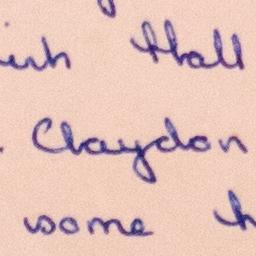 Hall
Claydon
some